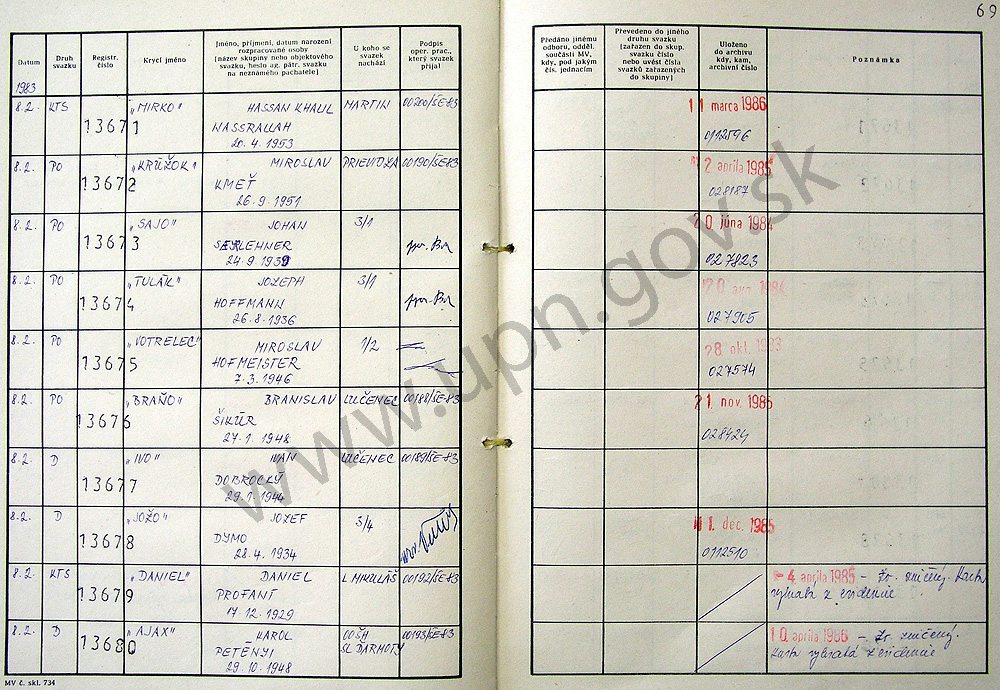 69
Datum
Druh svazku
Registr. číslo
Krycí jméno
Jméno, příjmení, datum narození
rozpracované osoby
[název skupiny nebo objektového
svazku, heslo ag. pátr. svazku
na neznámého pachatele]
U koho se
svazek
nachází
Podpis
oper. prac.,
který svazek
přijal
Předáno jinému
odboru, odděl.
součásti MV,
kdy, pod jakým
čís. jednacím
Převedeno do jiného
druhu svazku
[zařazen do skup.
svazku číslo
nebo uvést čísla
svazků zařazených
do skupiny]
Uloženo
do archivu
kdy, kam,
archivní číslo
Poznámka
1983
8.2. KTS 13671 „MIRKO" HASSAN KHALIL MARTIN 00200/ŠE-83 11 marca 1986
NASSRALLAH 0112596
20.4.1953
8.2. PO 13672 „KRÚŽOK" MIROSLAV PRIEVIDZA 00190/ŠE-83 2 apríla 1985
KMEŤ 028187
26.9.1951
8.2. PO 13673 „SAJO" JOHAN 3/1 20 júna 1984
024.9.1939 027823
8.2. PO 13674 „TULÁK" JOZEPH 3/1
HOFFMANN 027905
26.8.1936
8.2. PO 13675 „VOTRELEC" MIROSLAV 1/2 28 okt. 1983
HOFMEISTER 027574
7.3.1946
8.2. PO 13676 „BRAŇO" BRANISLAV LUČENEC 00188/ŠE-83 21. nov. 1985
ŠIKÚR 028424
27.1.1948
8.2. D 13677 „IVO" IVAN LUČENEC 00189/ŠE-83
DOBROCKÝ
29.1.1944
8.2. D 13678 „JOŽO" JOZEF 3/4 1. dec. 1985
DYMO 0112510
28.4.1934
8.2. KTS 13679 „DANIEL" DANIEL L. MIKULÁŠ 00192/ŠE-83 4 apríla 1985 – Zv. zničený. Karta
PROFANT vybratá z evidencie
17.12.1929
8.2. D 13680 „AJAX" KAROL OOŠH 00193/ŠE-83 10 apríla 1986 – Zv. zničený.
PETÉNYI SL. DARMOTY Karta vybratá z evidencie
29.10.1948
MV č. skl. 734
www.upn.gov.sk